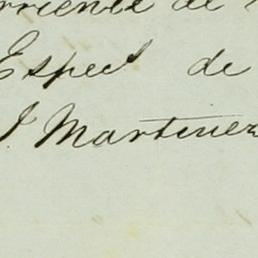 rriente de
Espec! de
J Martinez